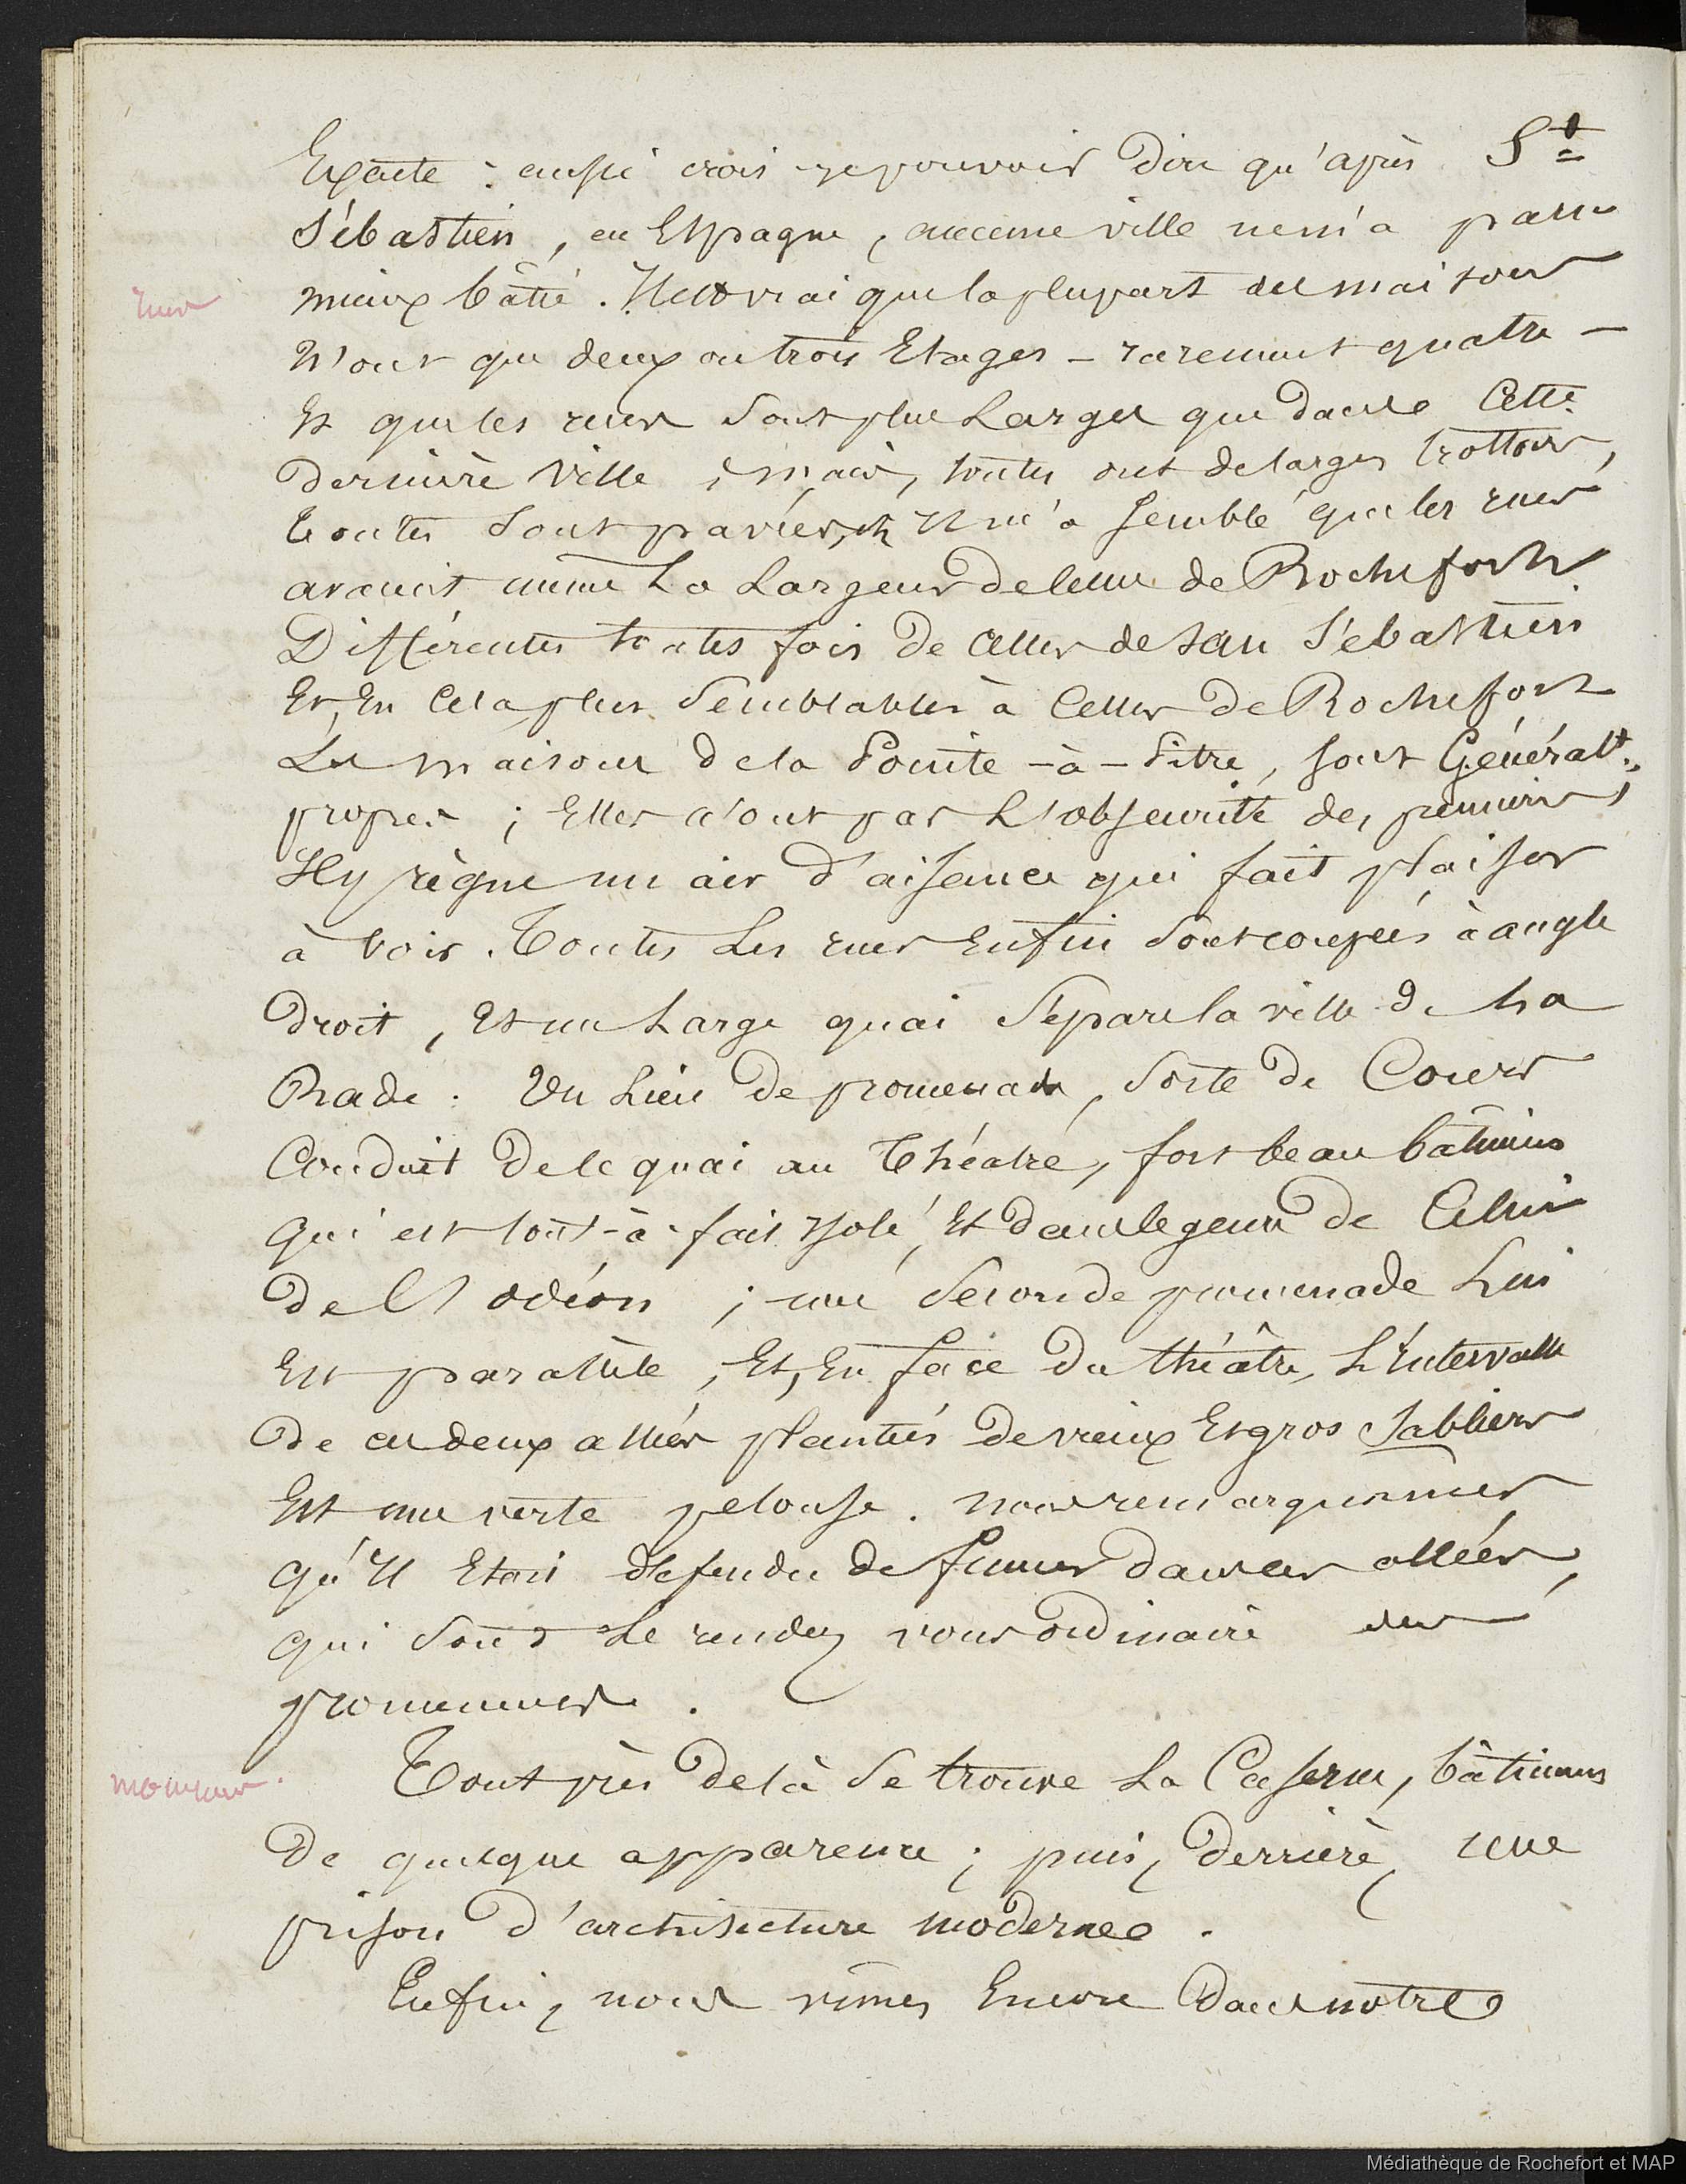 Exacte : aussi crois-je pouvoir dire qu'après St
Sébastien, en Espagne, aucune ville ne m'a paru
rues
mieux bâtie. Il est vrai que la plupart des maisons
n'ont que deux ou trois Etages - rarement quatre -
Et que les rues sont plus Larges que dans Cette
dernière Ville ; mais, toutes ont de larges trottoirs,
toutes sont pavées, et Il m'a semblé que les rues
avaient même La Largeur de celles de Rochefort
Différentes toutes fois de Celles de San Sébastien
Et, En Cela plus Semblables à Celles De Rochefort
Les maisons de la Pointe-à-Pitre, sont Généralt.
propres ; Elles n'ont pas L'obscurité des premières,
Il y règne un air D'aisance qui fait plaisir
à Voir. Toutes Les rues Enfin sont coupées à angle
Droit, Et un Large quai Sépare la ville de La
Rade. Un Lieu De promenade, Sorte De Cours
Conduit De le quai au Théatre, fort beau bâtiment
qui est tout-à-fait Isolé, Et dans le genre De Celui
De L'Odéon ; une Seconde promenade Lui
Est parallèle, Et, En face Du théâtre, L'Intervalle
De ces deux allées plantées De vieux Et gros Sabliers
Est une verte pelouse. nous remarquâmes
qu'Il Etait défendu de fumer dans ces allées,
qui sont Le rendez vous Ordinaire des
promeneurs.
monumens.
Tout près De là Se trouve La Caserne, bâtiment
De quelque apparence ; puis, Derrière, une
prison D'architecture moderne.
Enfin, nous vîmes Encore Dans notre
Médiathèque de Rochefort et MAP